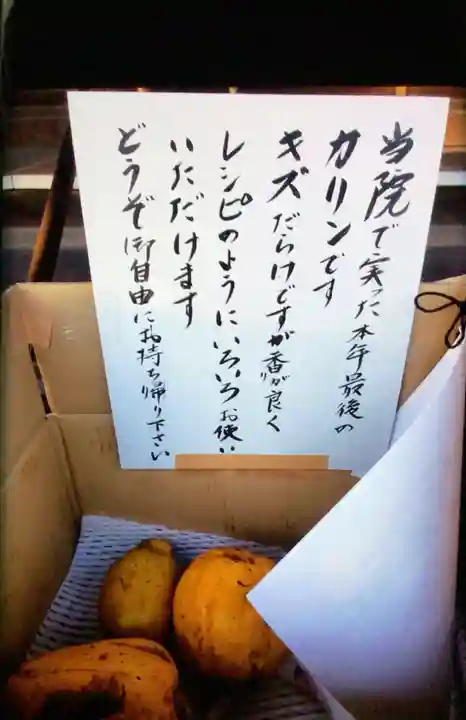 当院で実った本年最後の
カリンです
キズだらけですが香りが良く
レシピのようにいろいろお使い
いただけます
どうぞ御自由にお持ち帰り下さい